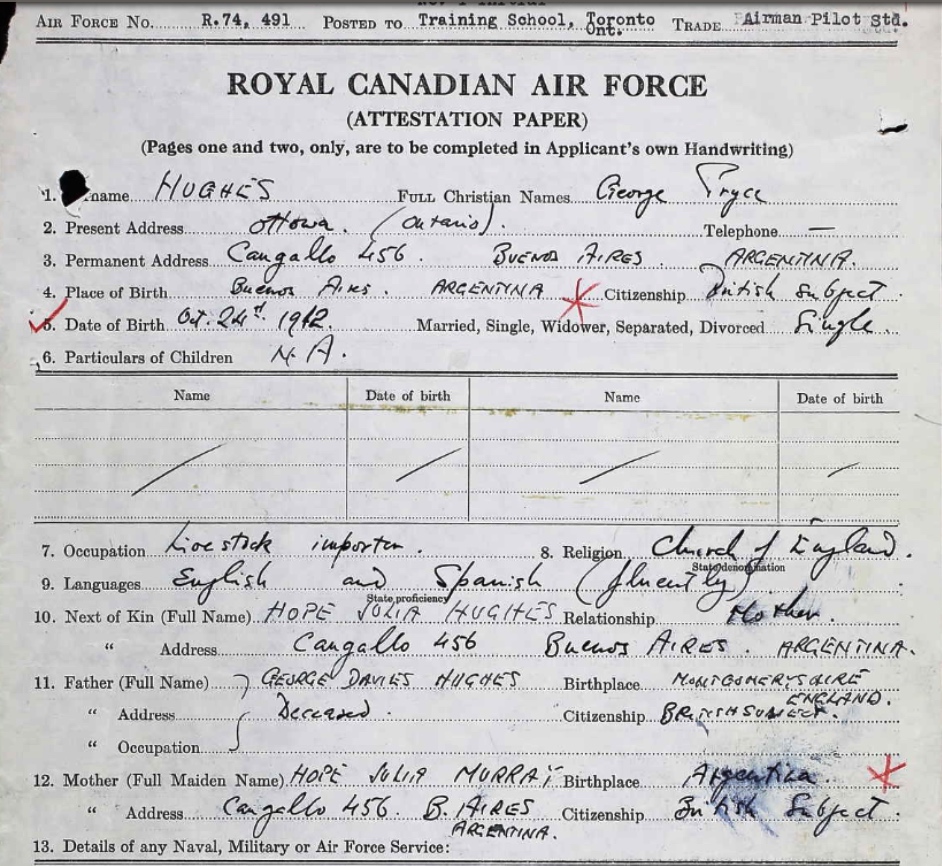 AIR FORCE NO. R.74, 491 POSTED TO Training School, Toronto Ont. TRADE Airman Pilot Std.
ROYAL CANADIAN AIR FORCE
(ATTESTATION PAPER)
(Pages one and two, only, are to be completed in Applicant's own Handwriting)
1. name HUGHES FULL Christian Names George Pryce
2. Present Address Ottowa. (Ontario). Telephone —
3. Permanent Address Cangallo 456. BUENOS AIRES. ARGENTINA.
4. Place of Birth Buenos Aires. ARGENTINA Citizenship British Subject.
5. Date of Birth Oct. 24st 1912. Married, Single, Widower, Separated, Divorced Single.
6. Particulars of Children N.A.
Name Date of birth Name Date of birth
7. Occupation Live stock importer. 8. Religion Church of England.
State denomination
9. Languages English and Spanish (fluently)
State proficiency
10. Next of Kin (Full Name) HOPE JULIA HUGHES Relationship Mother.
" Address Cangallo 456 BUENOS AIRES. ARGENTINA.
11. Father (Full Name) GEORGE DAVIES HUGHES Birthplace MONTGOMERYSHIRE ENGLAND.
" Address Deceased. Citizenship BRITISH SUBJECT.
" Occupation
12. Mother (Full Maiden Name) HOPE JULIA MURRAY Birthplace Argentina.
" Address Cangallo 456. B. AIRES ARGENTINA. Citizenship British Subject.
13. Details of any Naval, Military or Air Force Service: